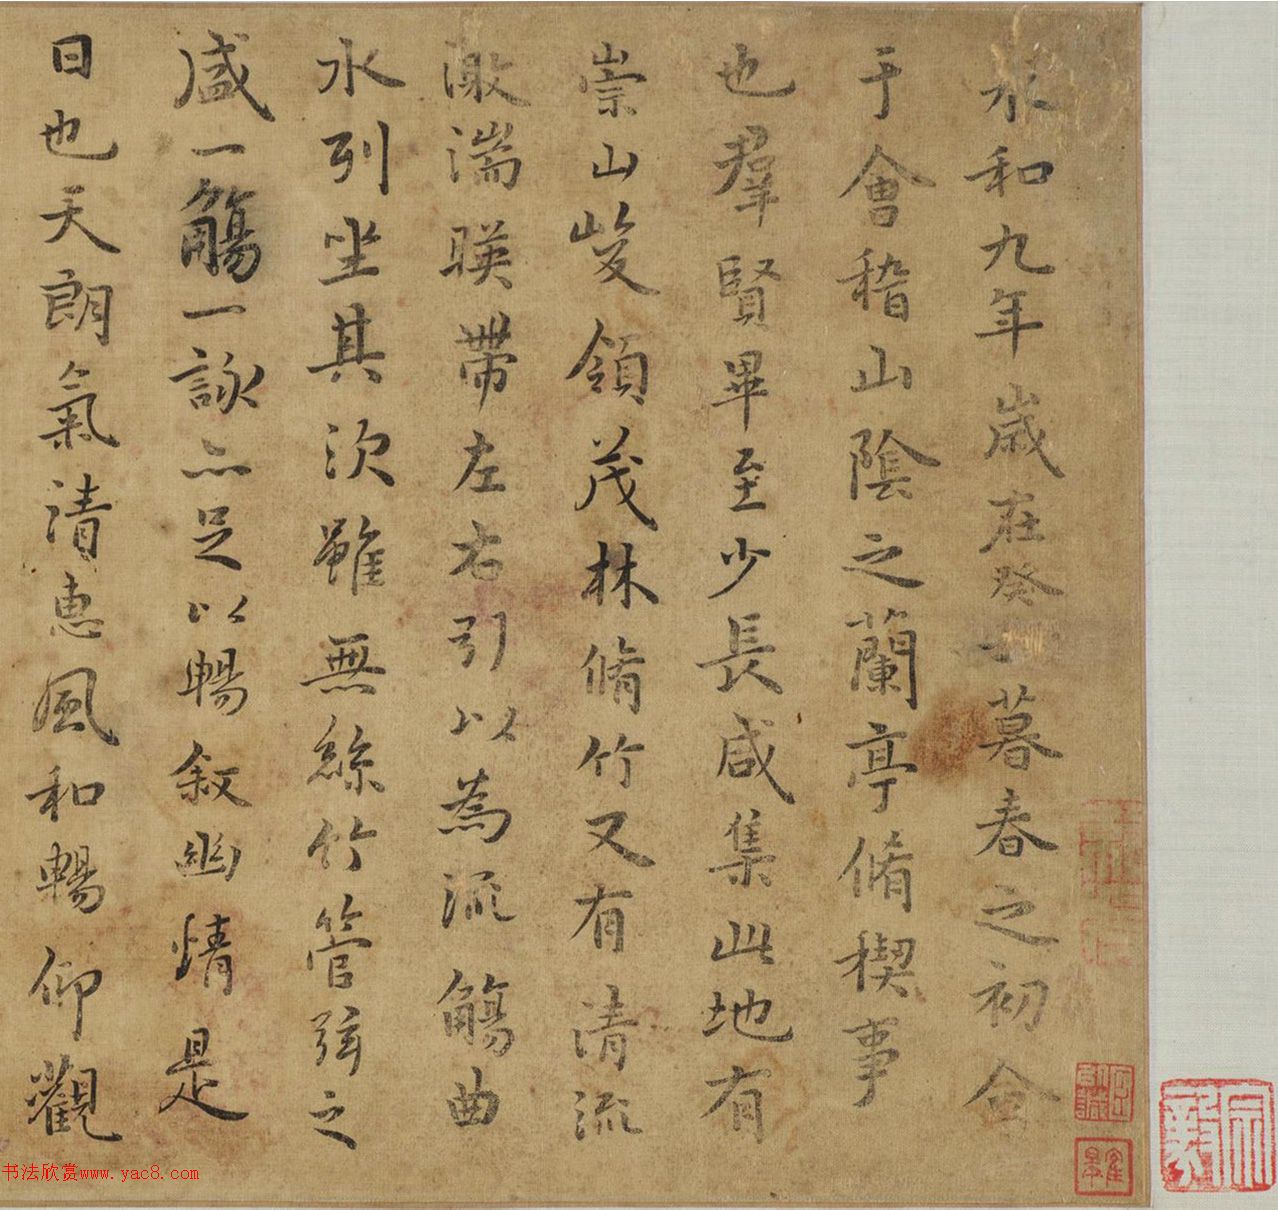 永和九年歲在癸丑暮春之初會
于會稽山陰之蘭亭脩稧事
也羣賢畢至少長咸集此地有
崇山峻領茂林脩竹又有清流
激湍暎帶左右引以為流觴曲
水列坐其次雖無絲竹管弦之
盛一觴一詠亦足以暢敘幽情是
日也天朗氣清惠風和暢仰觀
书法欣赏www.yac8.com